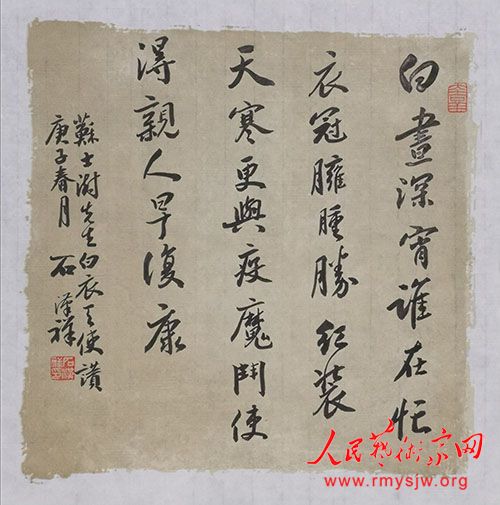 白晝深宵誰在忙
衣冠臃腫勝紅裝
天寒更與疫魔鬥使
得親人早復康
蘇士澍先生白衣天使讚
庚子春月 石 祥
人民藝術家网
www.rmysjw.org